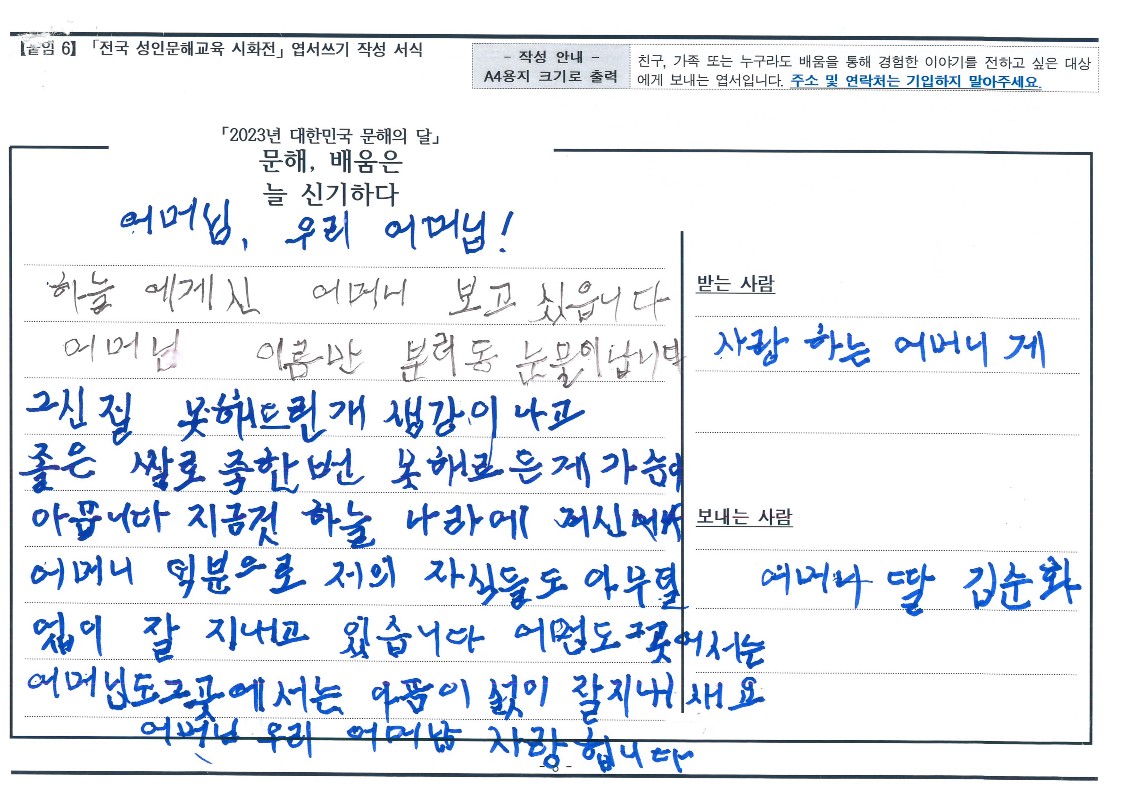 【붙임 6】「전국 성인문해교육 시화전」 엽서쓰기 작성 서식
- 작성 안내 -
A4용지 크기로 출력
친구, 가족 또는 누구라도 배움을 통해 경험한 이야기를 전하고 싶은 대상
에게 보내는 엽서입니다. 주소 및 연락처는 기입하지 말아주세요.
「2023년 대한민국 문해의 달」
문해, 배움은
늘 신기하다
어머님, 우리 어머님!
하늘 에게신 어머니 보고 싶읍니다
어머님 이름만 불러동 눈물이납니다
그신 질 못해드린개 생강이 나고
좋은 쌀로 죽한번 못해르든게 가슴이
아픕니다 지금껏 하늘 나라에
어머니 덕분으로 저의 자식들도 아무탈
없이 잘 지내고 있습니다 어멈도 그곳에서는
어머님도그곳에서는 아픔이 섮이 잘지내새요
어머님 우리 어머남 사랑헙니다
받는 사람
사랑 하는 어머니 게
보내는 사람
어머나 딸 김순화
- 8 -